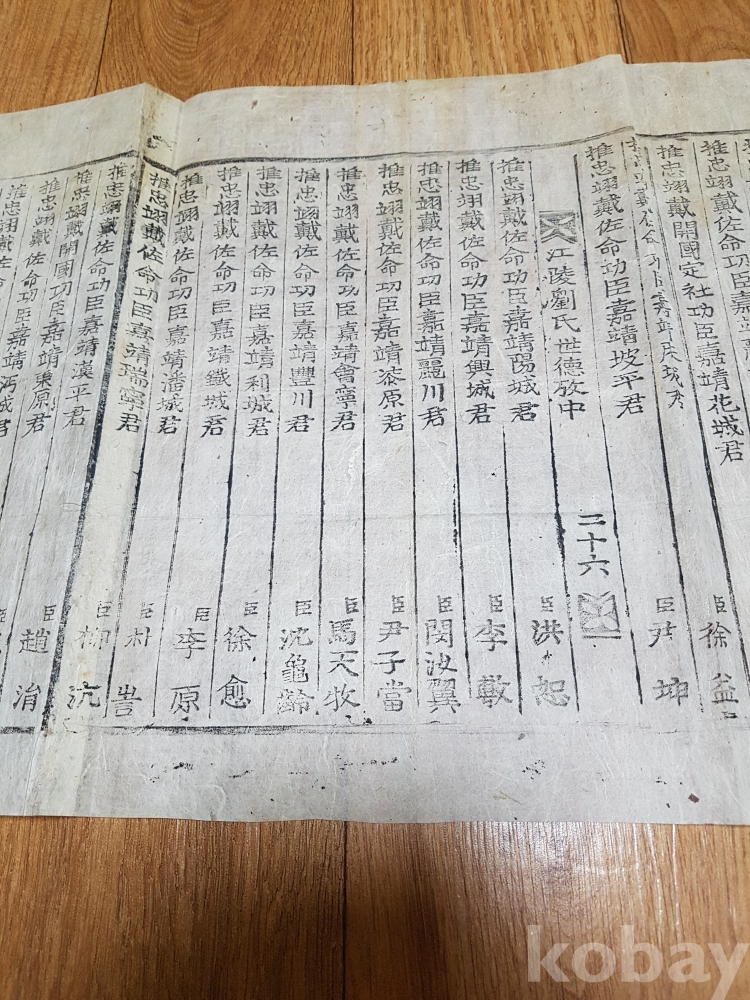 推忠翊戴佐命功臣嘉
推忠翊戴開國定社功臣嘉靖花城君
推忠翊戴佐命功臣嘉靖城君 臣徐益
推忠翊戴佐命功臣嘉靖坡平君 臣尹坤
江陵劉氏世德攷中 二十六
推忠翊戴佐命功臣嘉靖陽城君 臣洪恕
推忠翊戴佐命功臣嘉靖興城君 臣李敏
推忠翊戴佐命功臣嘉靖麗川君 臣閔汝翼
推忠翊戴佐命功臣嘉靖漆原君 臣尹子當
推忠翊戴佐命功臣嘉靖會寧君 臣馬天牧
推忠翊戴佐命功臣嘉靖豐川君 臣沈龜齡
推忠翊戴佐命功臣嘉靖利城君 臣徐愈
推忠翊戴佐命功臣嘉靖鐵城君 臣李原
推忠翊戴佐命功臣嘉靖潘城君 臣朴訔
推忠翊戴佐命功臣嘉靖瑞寧君 臣柳沆
推忠翊戴開國功臣嘉靖漢平君 臣趙治
推忠翊戴佐命功臣嘉靖原君
推忠翊戴佐命功臣嘉靖沔城君
kobay